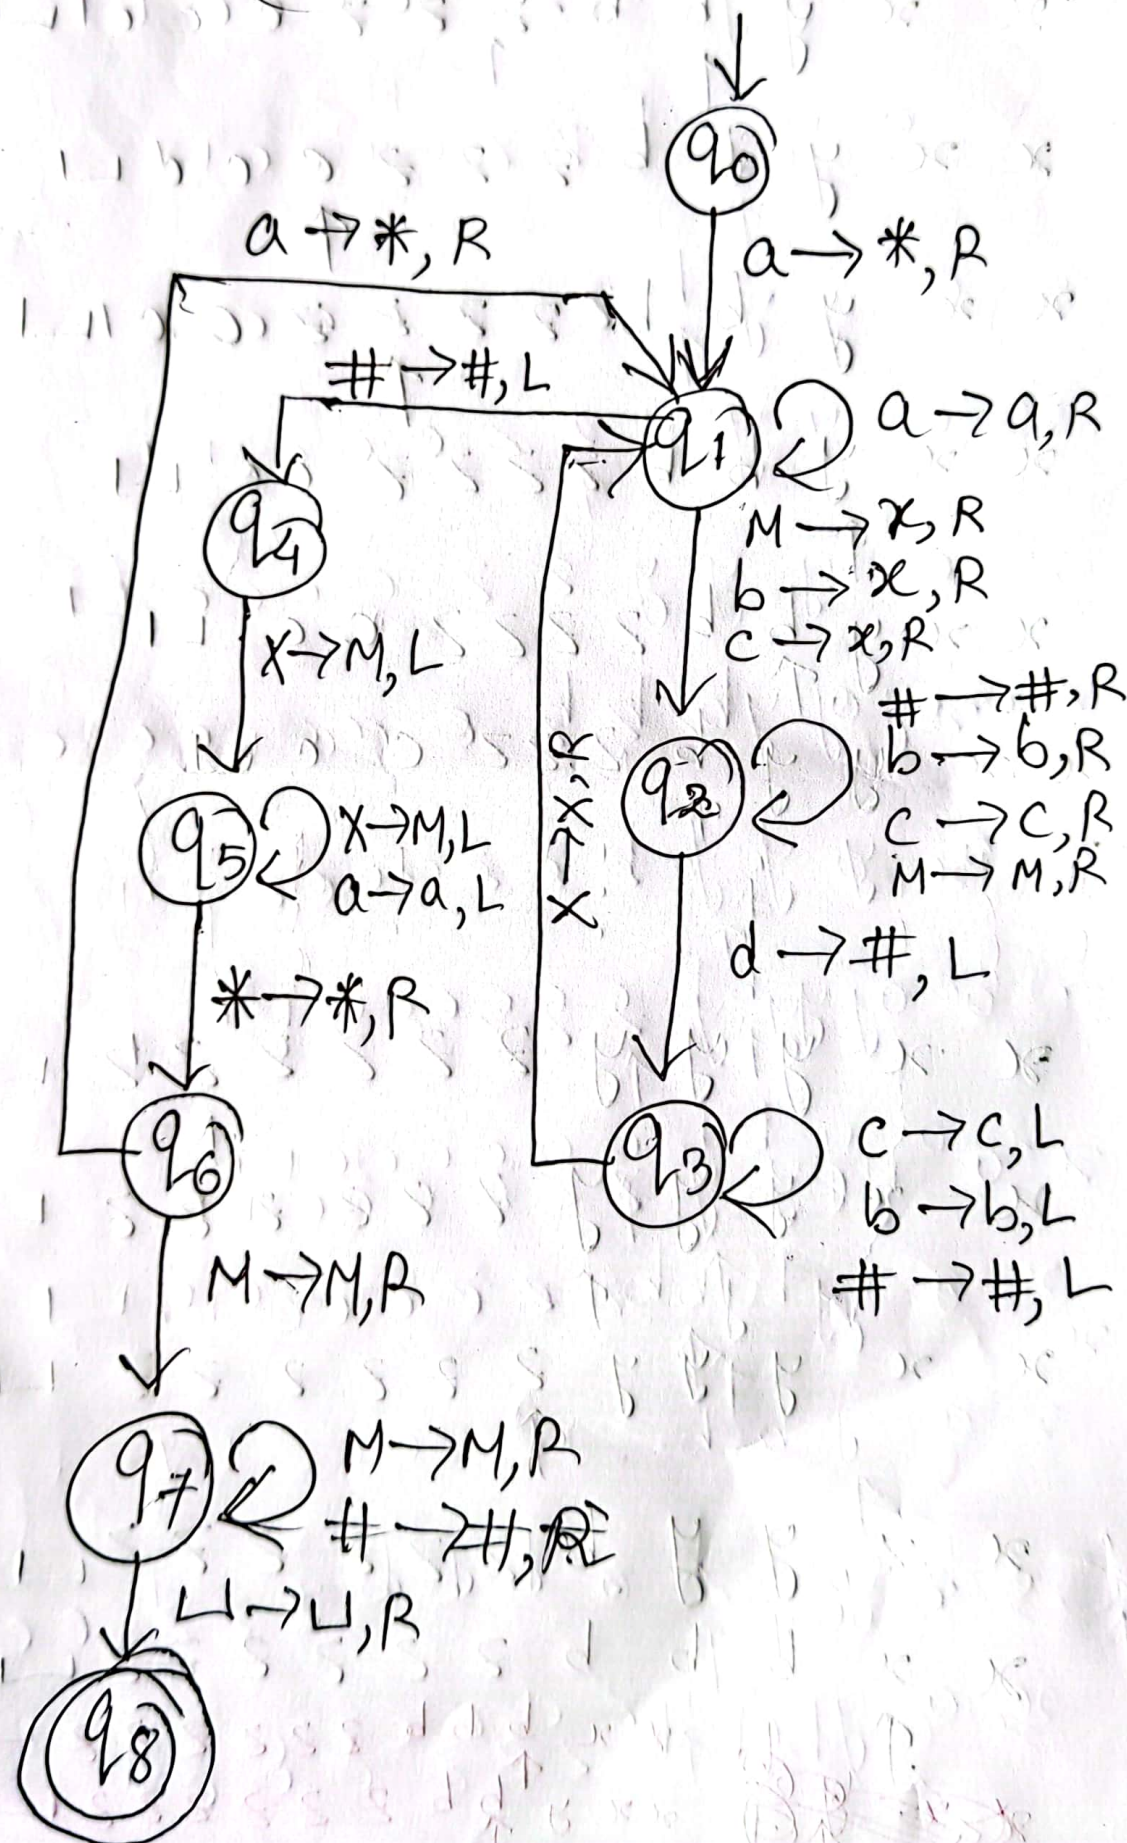 q0
a → *, R
a → *, R
# → #, L
q1
a → a, R
q4
M → x, R
b → x, R
c → x, R
X → M, L
# → #, R
b → b, R
c → c, R
M → M, R
q2
X → X, R
q5
X → M, L
a → a, L
d → #, L
* → *, R
q6
q3
c → c, L
b → b, L
# → #, L
M → M, R
q7
M → M, R
# → #, R
⊔ → ⊔, R
q8